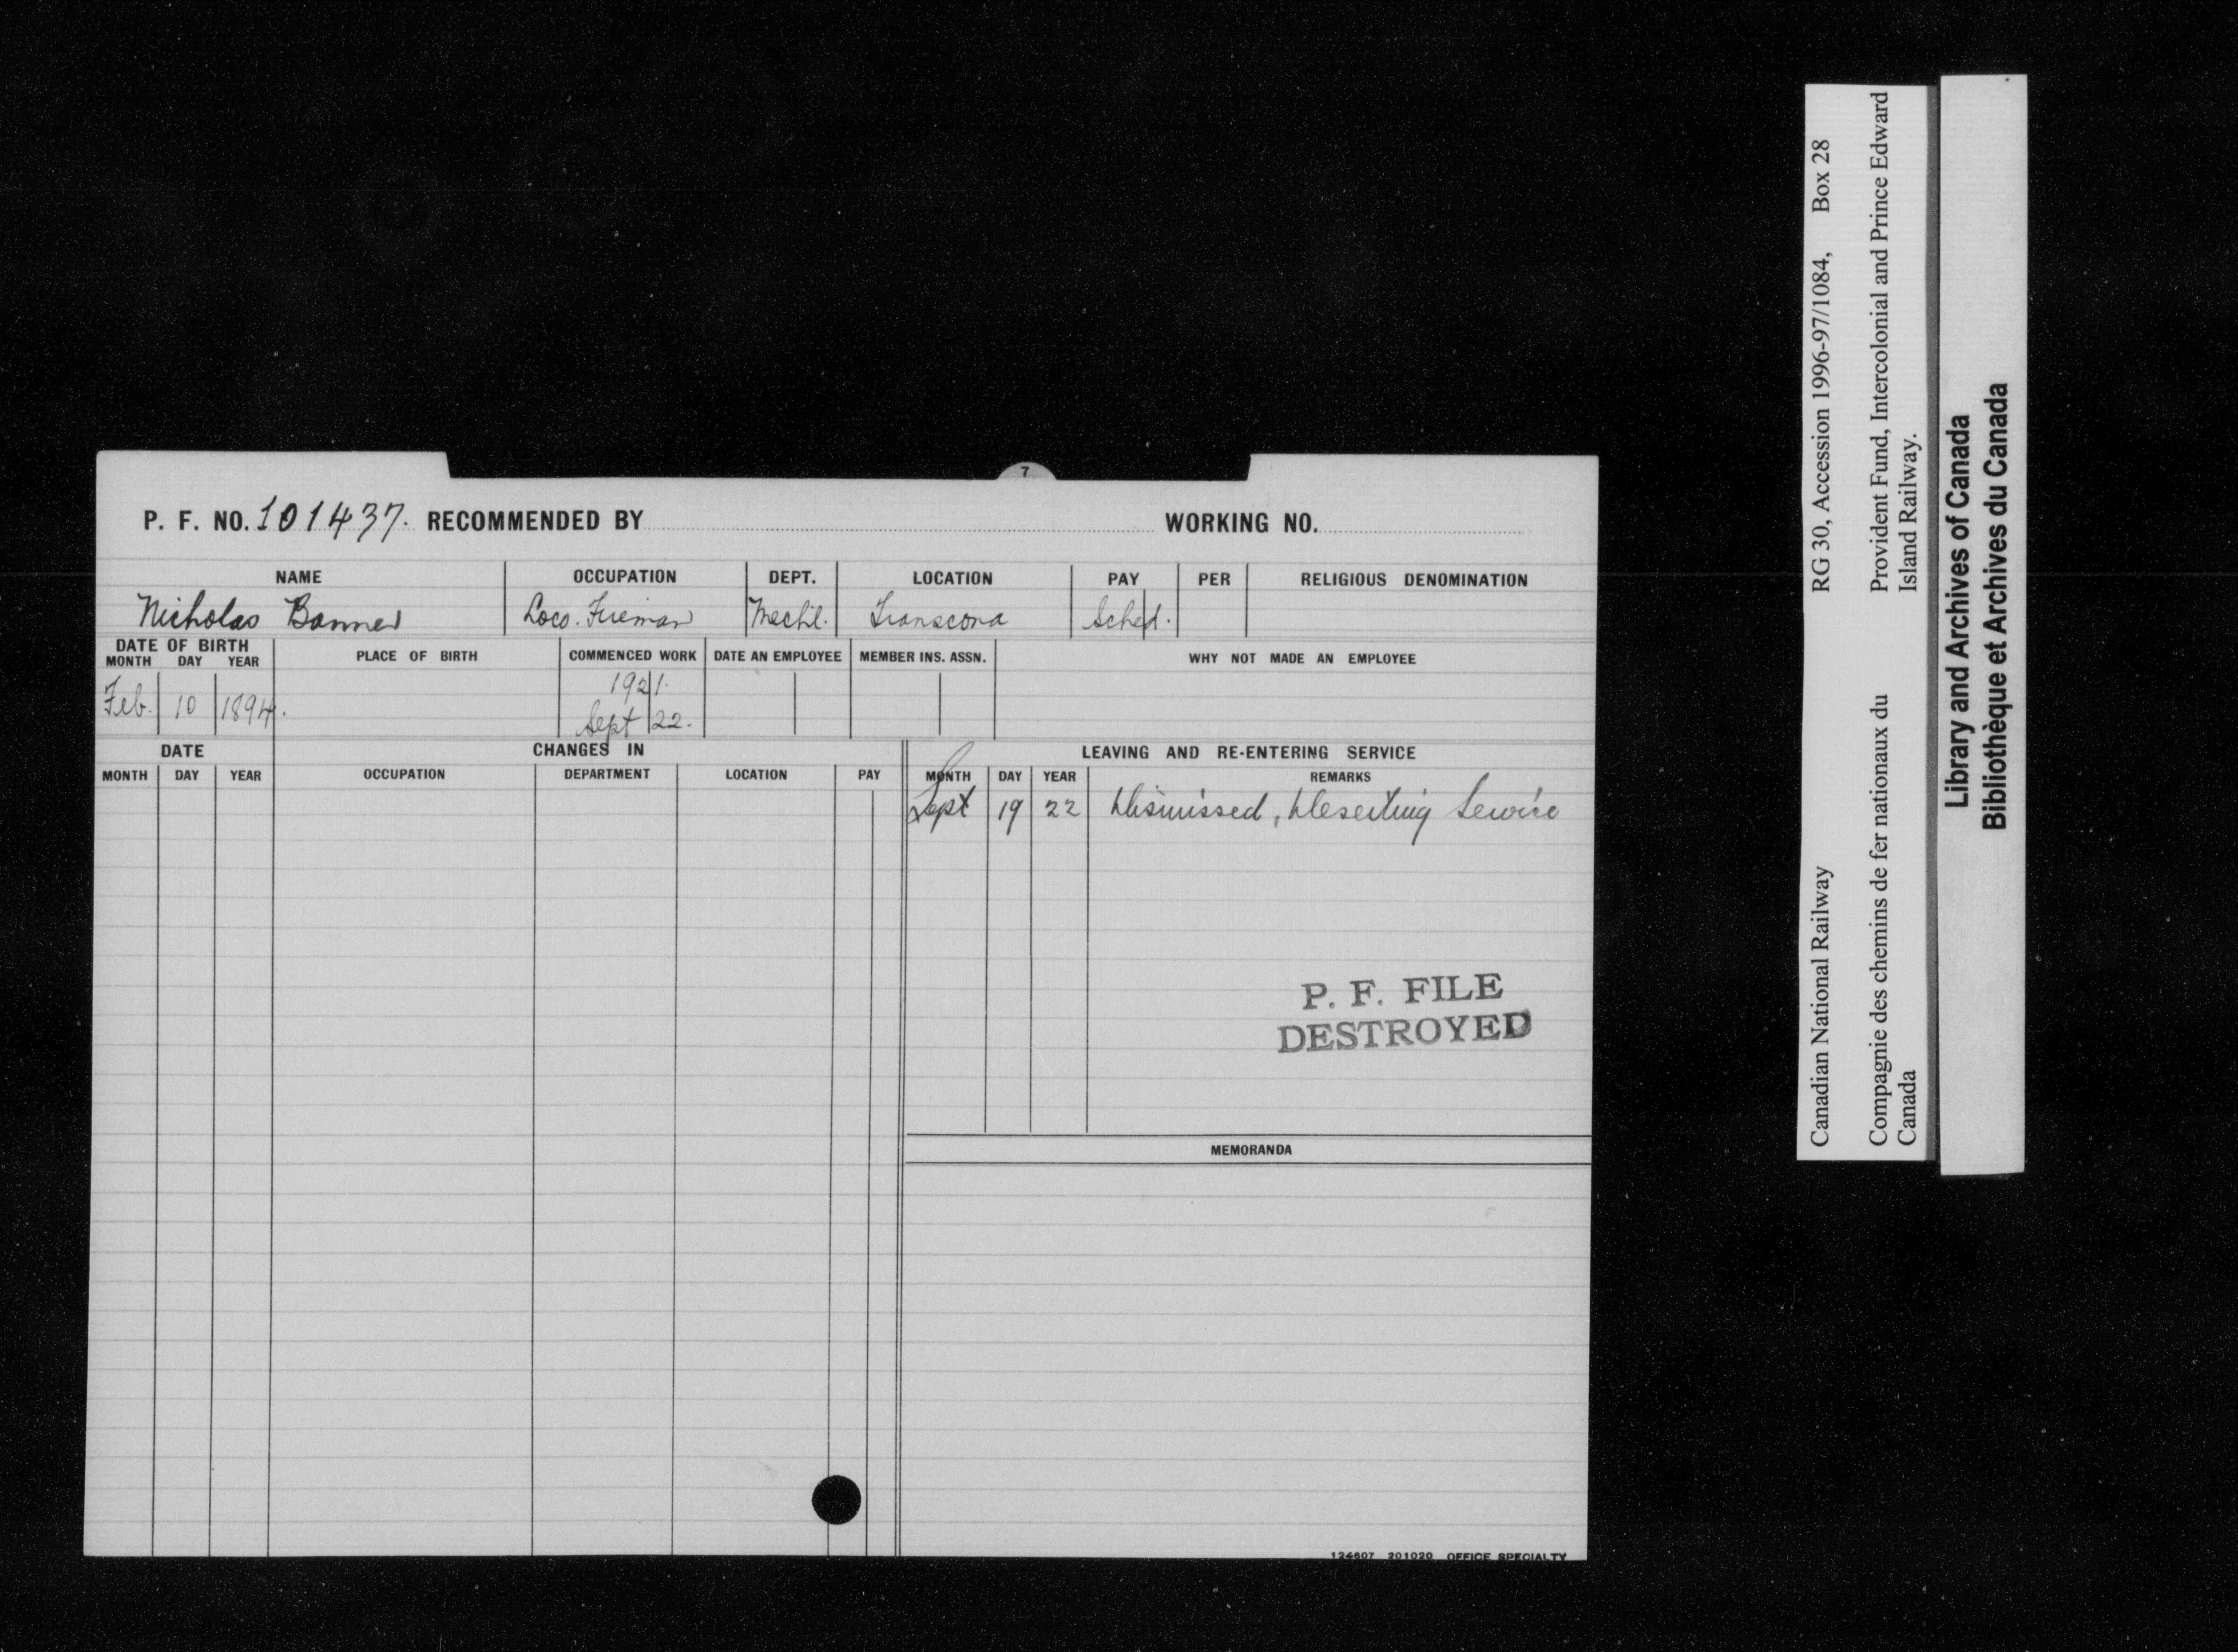 7
P. F. NO. 101437. RECOMMENDED BY WORKING NO.
NAME OCCUPATION DEPT. LOCATION PAY PER RELIGIOUS DENOMINATION
Nicholas Loco. Fireman Mech'l. Transcona Sched.
DATE OF BIRTH
MONTH DAY YEAR PLACE OF BIRTH COMMENCED WORK DATE AN EMPLOYEE MEMBER INS. ASSN. WHY NOT MADE AN EMPLOYEE
1921.
Feb. 10 1894. Sept 22.
DATE CHANGES IN LEAVING AND RE-ENTERING SERVICE
MONTH DAY YEAR OCCUPATION DEPARTMENT LOCATION PAY MONTH DAY YEAR REMARKS
Sept 19 22 Dismissed, Deserting Service
P. F. FILE
DESTROYED
MEMORANDA
124607 201020 OFFICE SPECIALTY
Canadian National Railway RG 30, Accession 1996-97/1084, Box 28
Compagnie des chemins de fer nationaux du Provident Fund, Intercolonial and Prince Edward
Canada Island Railway.
Library and Archives of Canada
Bibliothèque et Archives du Canada